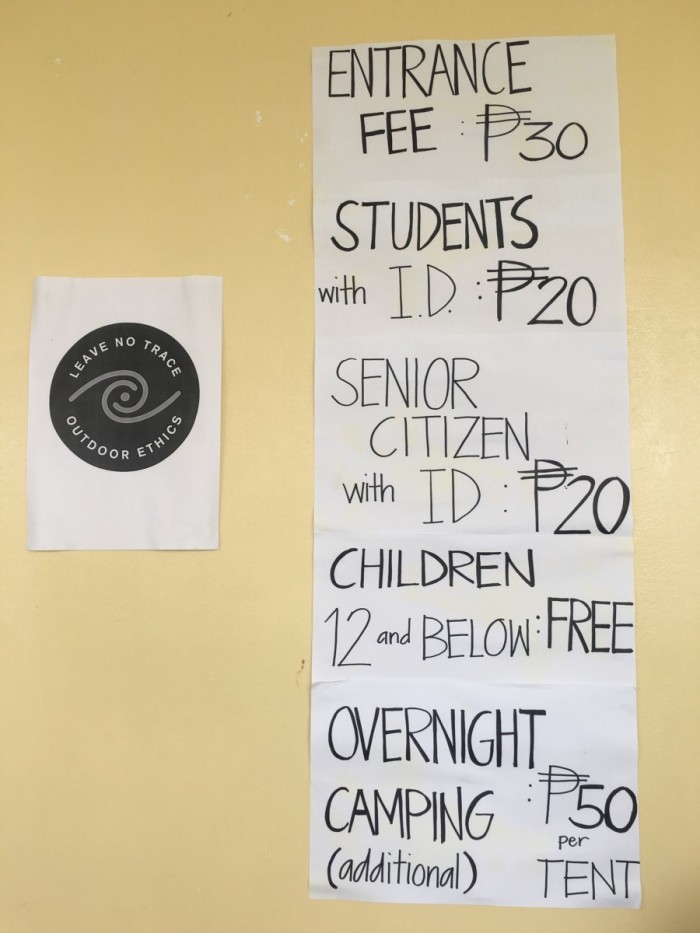 LEAVE NO TRACE
OUTDOOR ETHICS
ENTRANCE
FEE : ₱30
STUDENTS
with I.D. : ₱20
SENIOR
CITIZEN
with ID : ₱20
CHILDREN
12 and BELOW : FREE
OVERNIGHT
CAMPING : ₱50
per
(additional) TENT